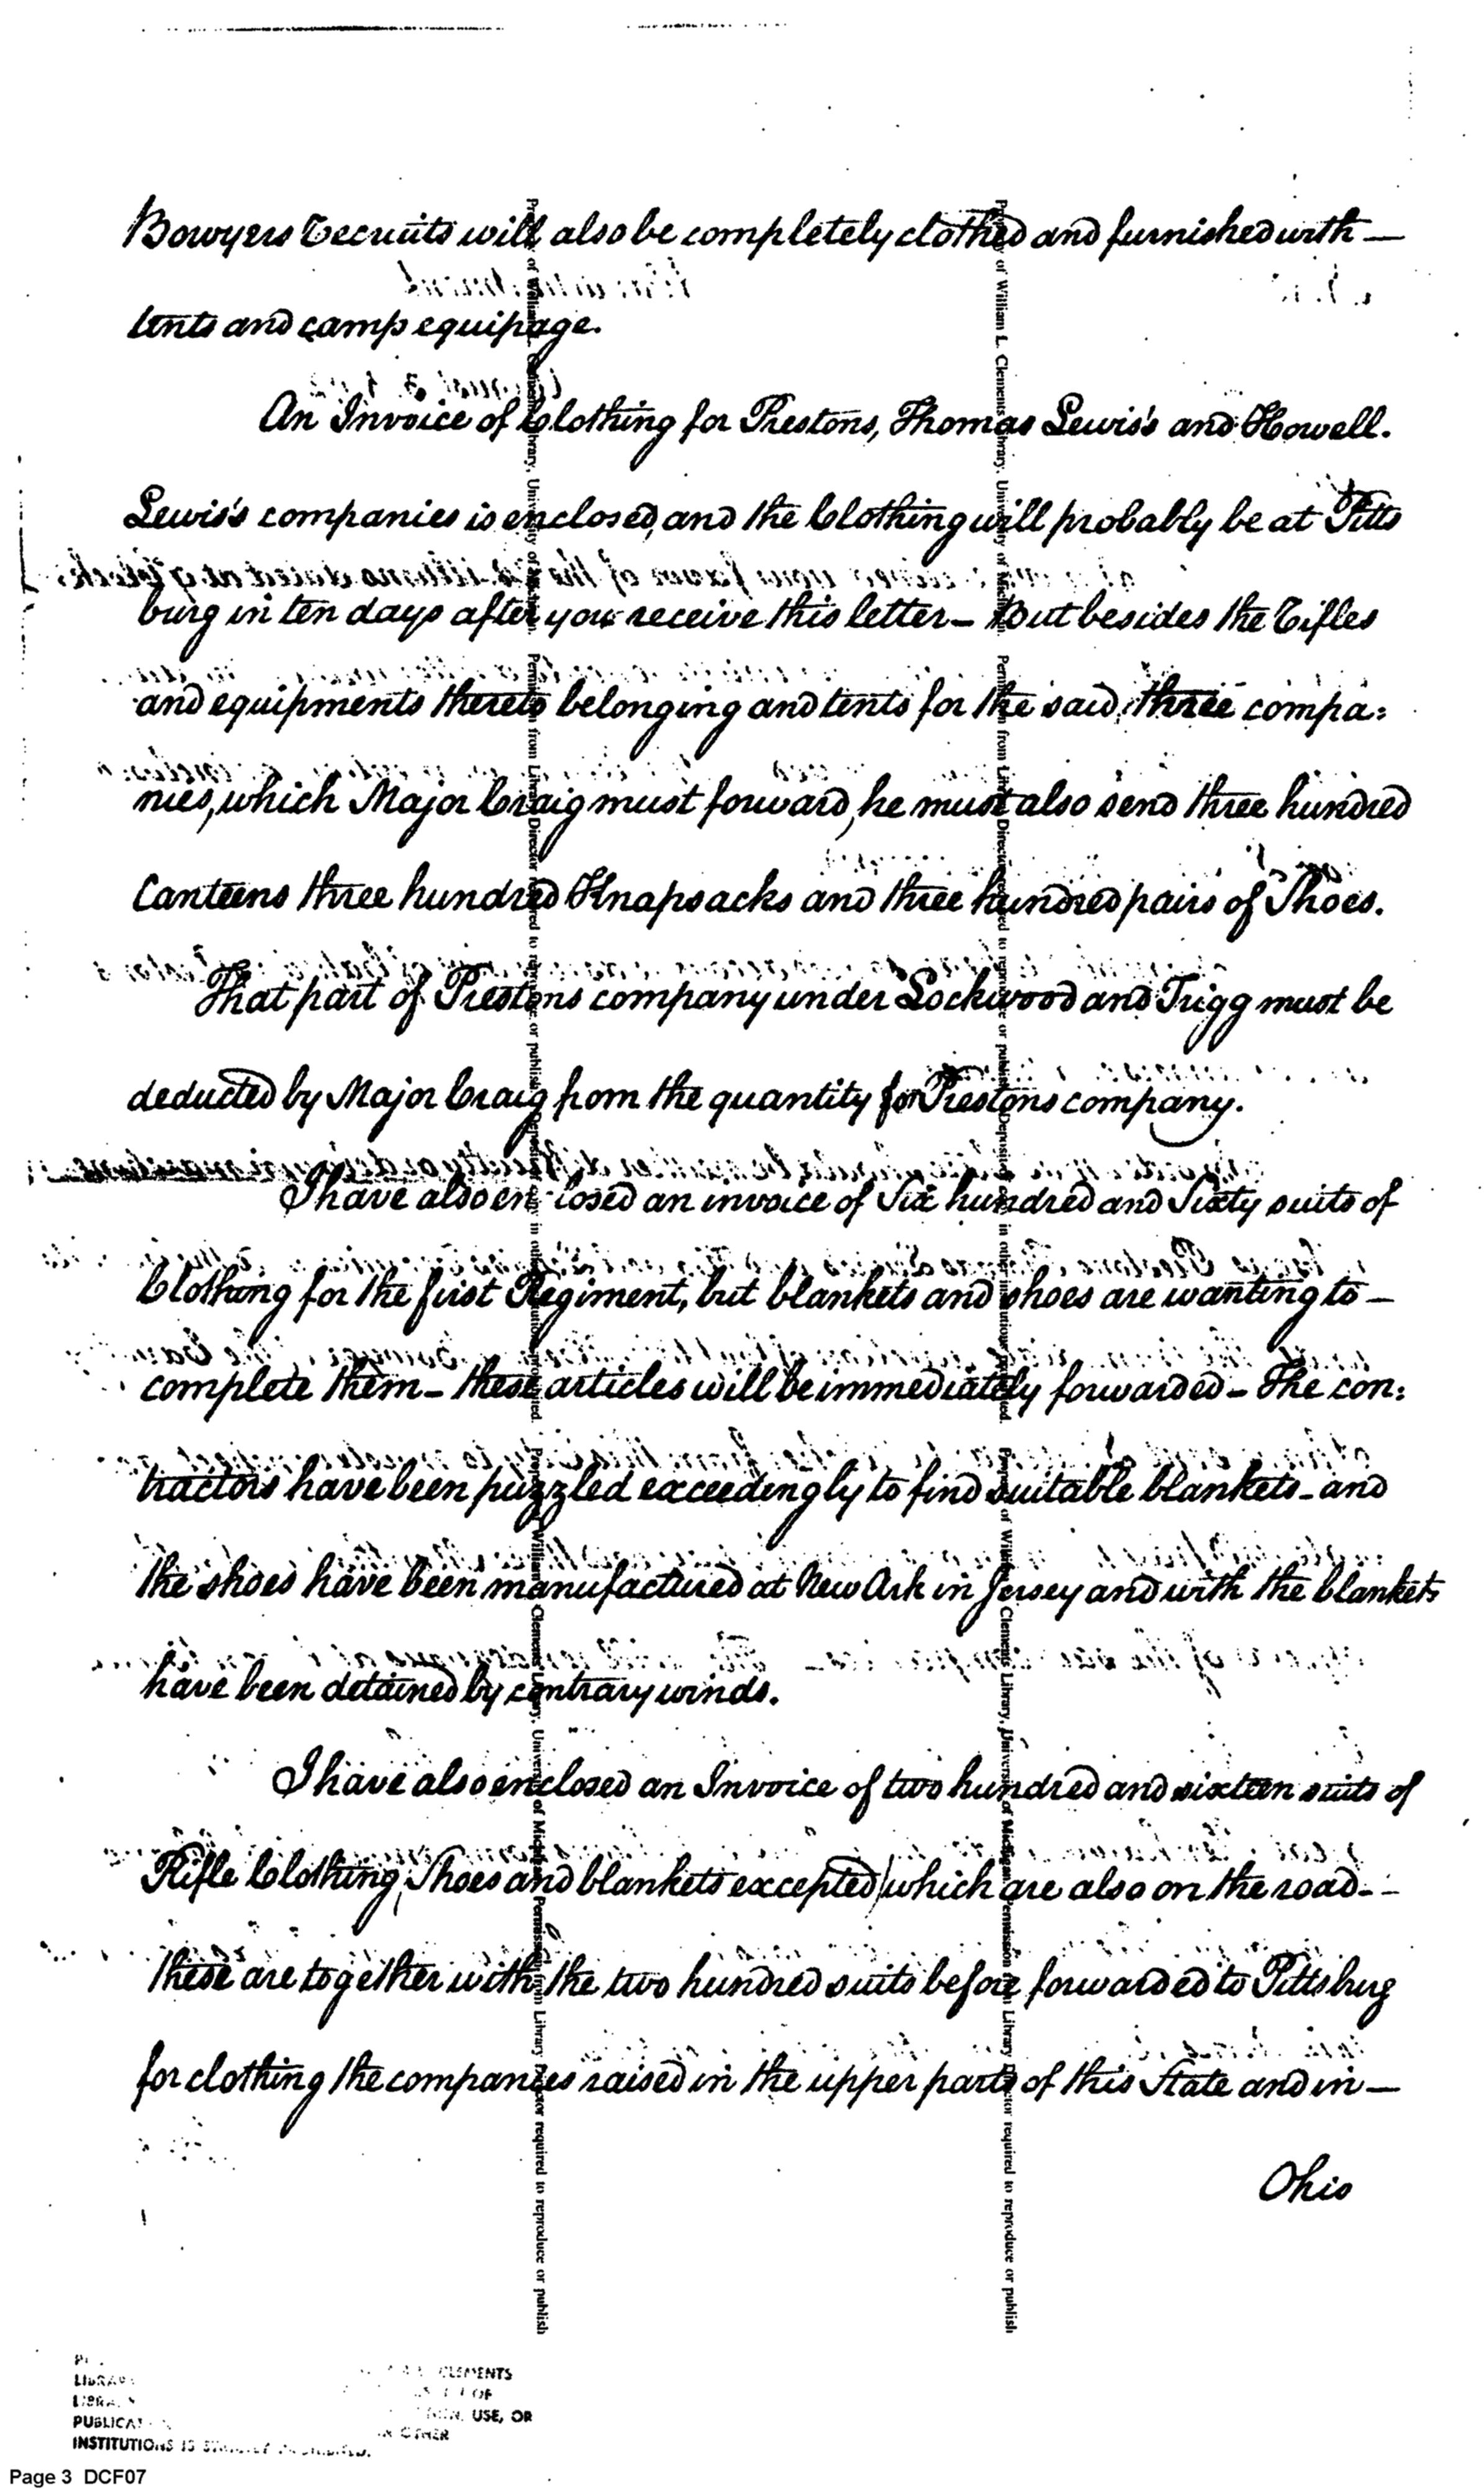 Bowyers Recruits will also be completely clothed and furnished with —
tents and camp equipage.
An Invoice of Clothing for Prestons, Thomas Lewis's and Howell.
Lewis's companies is enclosed, and the Clothing will probably be at Pitts
burg in ten days after you receive this letter – But besides the Rifles
and equipments thereto belonging and tents for the said three compa=
nies, which Major Craig must forward, he must also send three hundred
Canteens three hundred Knapsacks and three hundred pairs of Shoes.
That part of Prestons company under Lockwood and Trigg must be
deducted by Major Craig from the quantity for Prestons company.
I have also enclosed an invoice of Six hundred and Sixty suits of
Clothing for the first Regiment, but blankets and shoes are wanting to —
complete them – these articles will be immediately forwarded – The con=
tractors have been puzzled exceedingly to find suitable blankets – and
the shoes have been manufactured at New Ark in Jersey and with the blankets
have been detained by contrary winds.
I have also enclosed an Invoice of two hundred and sixteen suits of
Rifle Clothing (Shoes and blankets excepted) which are also on the road –
these are together with the two hundred suits before forwarded to Pittsburg
for clothing the companies raised in the upper parts of this State and in —
Ohio
Property of William L. Clements Library, University of Michigan. Permission from Library Director required to reproduce or publish. Deposit of copy in other institution prohibited. Property of William L. Clements Library, University of Michigan. Permission from Library Director required to reproduce or publish
Property of William L. Clements Library, University of Michigan. Permission from Library Director required to reproduce or publish. Deposit of copy in other institution prohibited. Property of William L. Clements Library, University of Michigan. Permission from Library Director required to reproduce or publish
CLEMENTS
LIBRARY
OF
USE, OR
OTHER
INSTITUTIONS IS
Page 3 DCF07